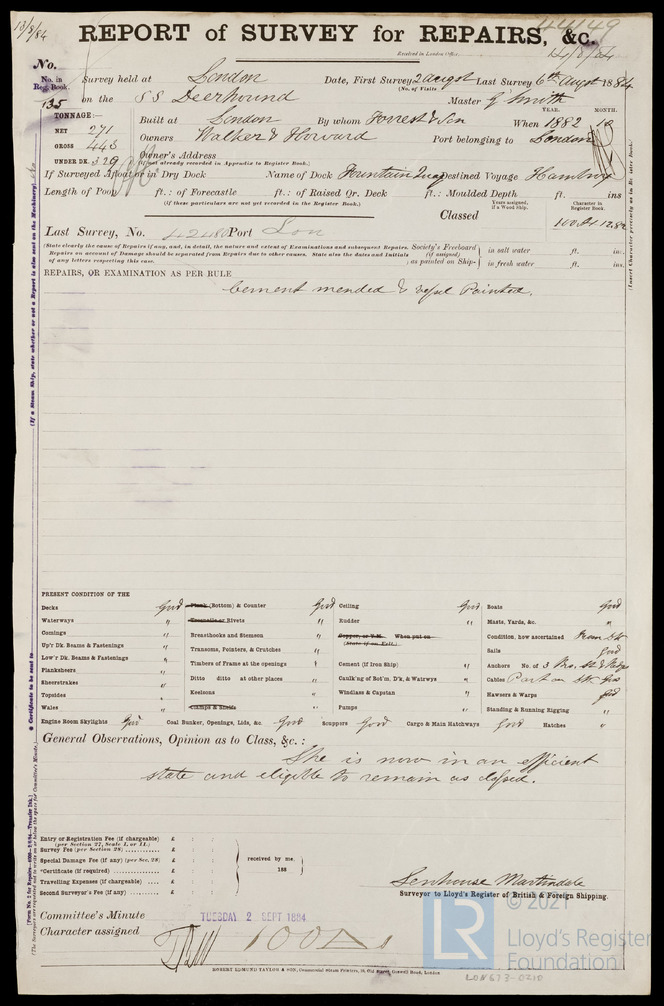 13/8/84
44149
REPORT of SURVEY for REPAIRS, &c.
Received in London Office,
14/8/84
No.
No. in Reg. Book. Survey held at London Date, First Survey 2 augst Last Survey 6th augst 1884
(No. of Visits
135 on the SS Deerhound Master G Smith
YEAR. MONTH.
TONNAGE:— Built at London By whom Forrest & Son When 1882 10
NET 271 Owners Walker & Howard Port belonging to London
GROSS 443
UNDER DK. 329 Owner's Address
(if not already recorded in Appendix to Register Book.)
If Surveyed Afloat or in Dry Dock Name of Dock Fountain Destined Voyage
Length of Poop ft.: of Forecastle ft.: of Raised Qr. Deck ft.: Moulded Depth ft. ins
(If these particulars are not yet recorded in the Register Book.)
Years assigned, if a Wood Ship. Character in Register Book.
Classed 100 A1 12,82
Last Survey, No. 42480 Port Lon
(State clearly the cause of Repairs if any, and, in detail, the nature and extent of Examinations and subsequent Repairs. Society's Freeboard in salt water ft. in.
Repairs on account of Damage should be separated from Repairs due to other causes. State also the dates and Initials (if assigned)
of any letters respecting this case. as painted on Ship- in fresh water ft. ins.
REPAIRS, OR EXAMINATION AS PER RULE
Cement mended & vessel Painted.
PRESENT CONDITION OF THE
Decks Good Plank (Bottom) & Counter Good Ceiling Good Boats Good
Waterways " Treenails or Rivets " Rudder " Masts, Yards, &c. "
Comings " Breasthooks and Stemson " Copper, or Y.M. When put on Condition, how ascertained From Dk
(State if on Felt.)
Up'r Dk. Beams & Fastenings " Transoms, Pointers, & Crutches " Sails Good
Low'r Dk. Beams & Fastenings " Timbers of Frame at the openings Cement (if Iron Ship) " Anchors No. of 3
Planksheers " Ditto ditto at other places " Caulk'ng of Bot'm. D'k, & Watrwys " Cables Part on Dk Good
Sheerstrakes " Keelsons " Windlass & Capstan " Hawsers & Warps Good
Topsides " Clamps & Shelfs Pumps " Standing & Running Rigging "
Wales "
Engine Room Skylights Good Coal Bunker, Openings, Lids, &c. Good Scuppers Good Cargo & Main Hatchways Good Hatches "
General Observations, Opinion as to Class, &c. :
She is now in an efficient
state and eligible to remain as classed.
Entry or Registration Fee (if chargeable) £ : :
(per Section 27, Scale I. or II.)
Survey Fee (per Section 28) £ : :
Special Damage Fee (if any) (per Sec. 28) £ : : received by me
*Certificate (if required) £ : : 188
Travelling Expenses (if chargeable) £ : :
Second Surveyor's Fee (if any) £ : :
Senhouse Martindale
Surveyor to Lloyd's Register of British & Foreign Shipping.
Committee's Minute TUESDAY 2 SEPT 1884
Character assigned 100 A 1
ROBERT EDMUND TAYLOR & SON, Commercial Steam Printers, 19, Old Street, Goswell Road, London
LR © 2021
Lloyd's Register
Foundation
LON673-0210